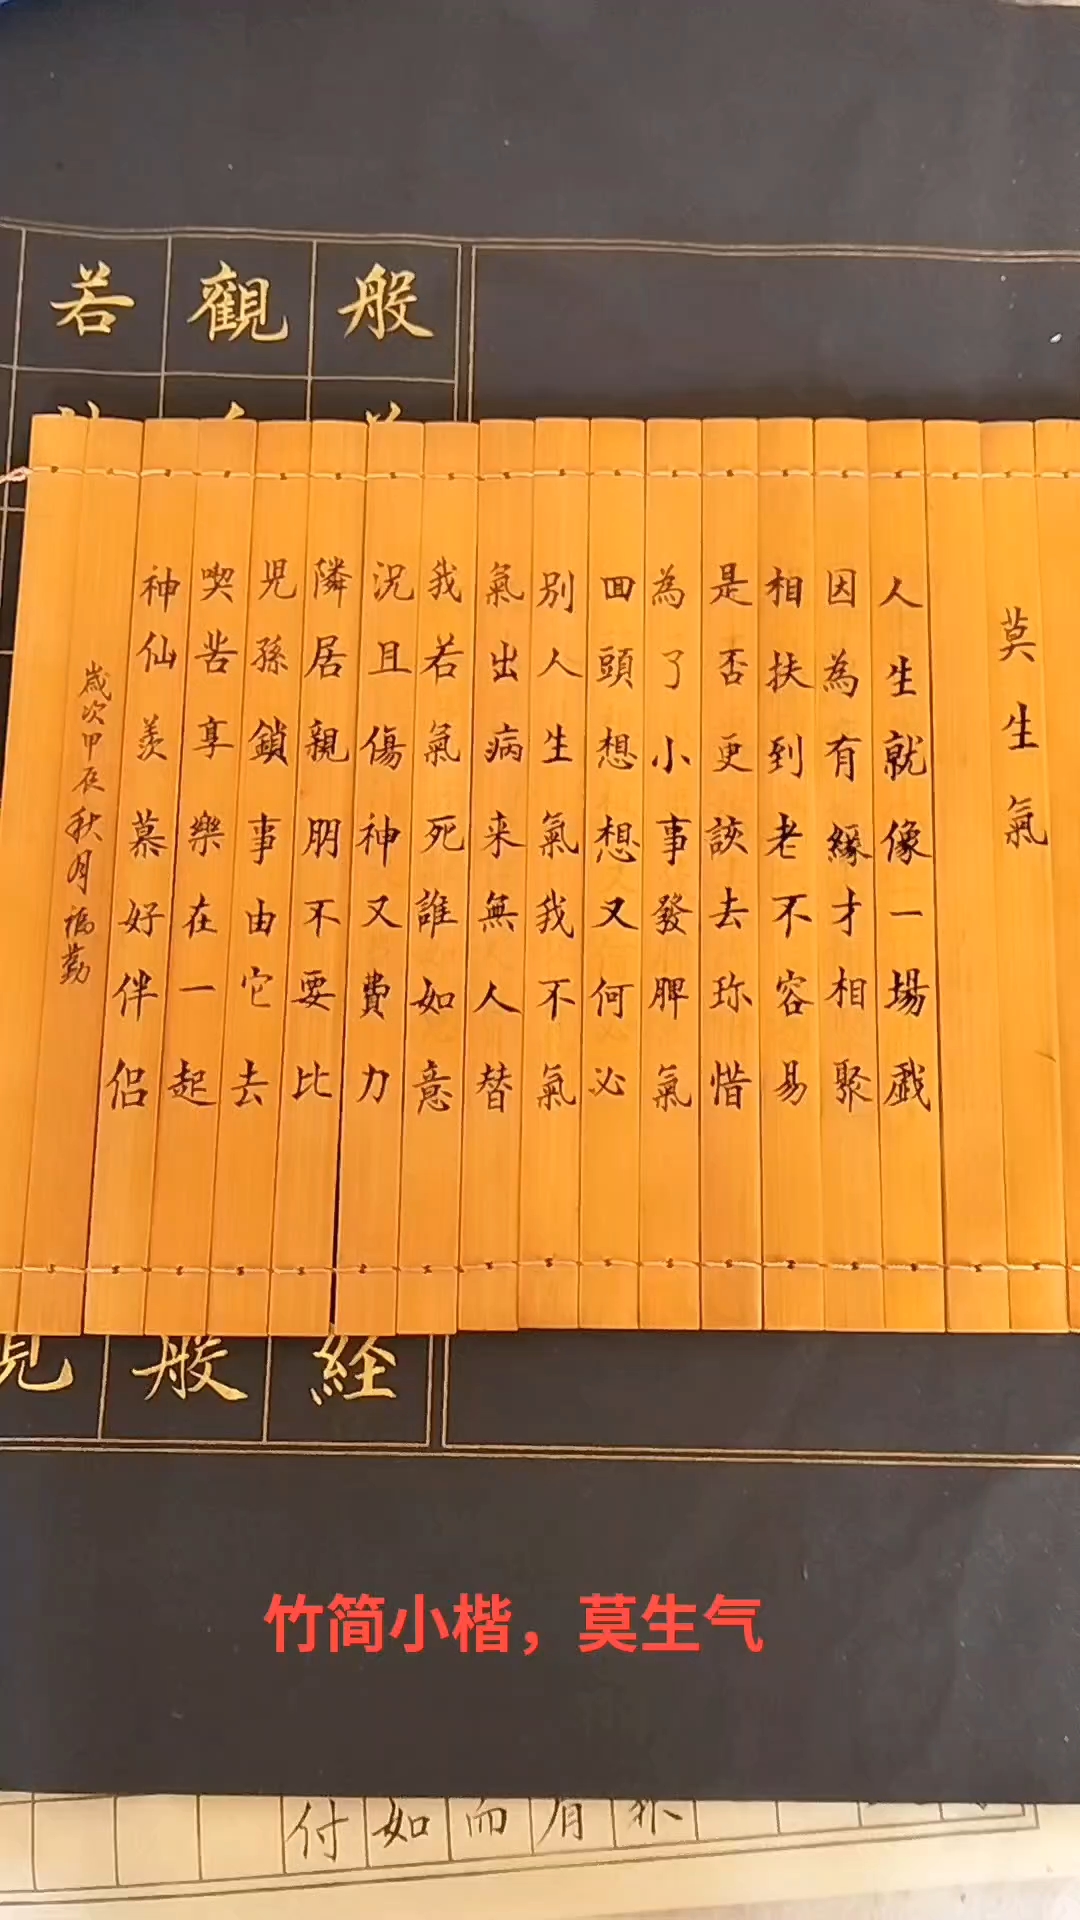 莫生氣
人生就像一場戲
因為有緣才相聚
相扶到老不容易
是否更該去珍惜
為了小事發脾氣
回頭想想又何必
別人生氣我不氣
氣出病来無人替
我若氣死誰如意
況且傷神又費力
隣居親朋不要比
児孫鎖事由它去
喫苦享樂在一起
神仙羨慕好伴侶
歲次甲辰秋月福勤
般
觀
若
経
般
見
竹简小楷，莫生气
付如而有